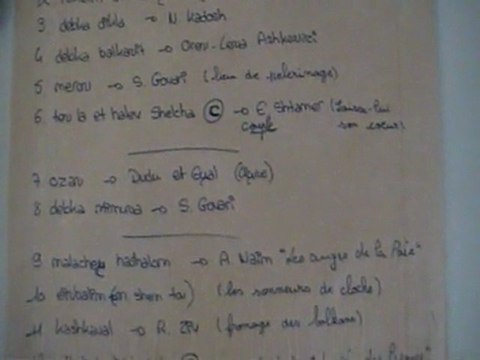 3 debka dikla → N. Kadosh
4 debka balkanit → Oren-Lena Ashkenazi
5 meron → S. Govari (lieu de pelerinage)
6. tov la et halev Shelcha Ⓒ → E. Shtamer (laisse-lui
couple son coeur)
7 ozav → Dudu et Eyal
8 debka → S. Govari
9 malachey hashalom → A. Naïm "les anges de la Paix"
10 (les sonneurs de cloche)
11 kashkaval → R. Ziv (fromage des balkans)